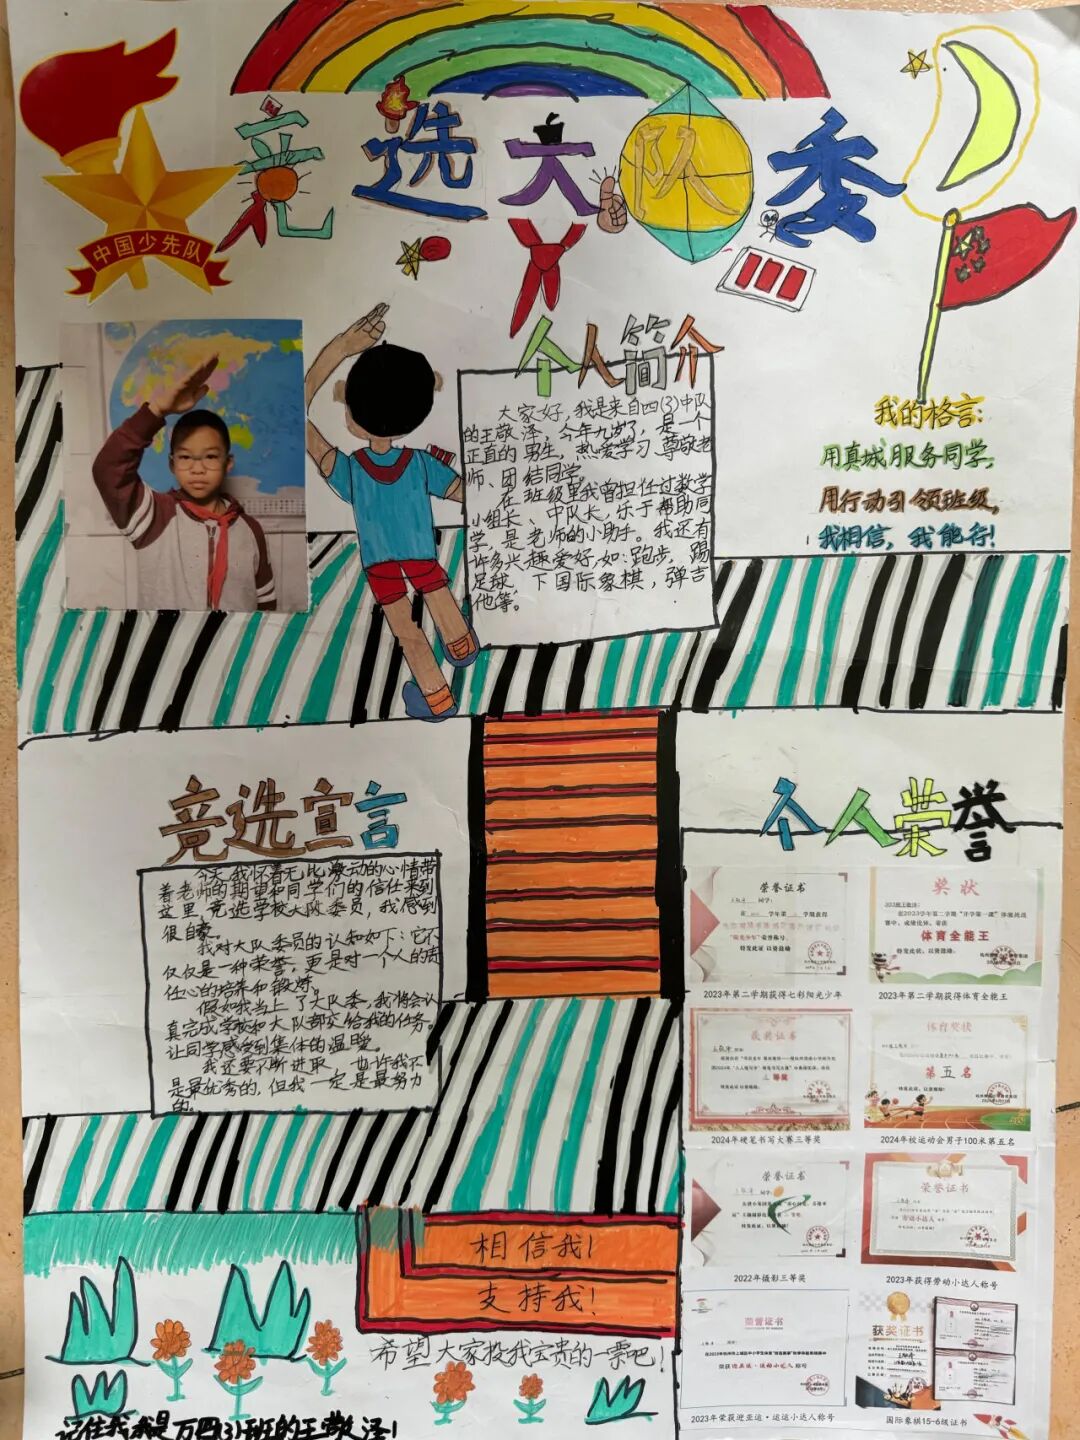 竞选大队委
中国少先队
个人简介
大家好，我是来自四(3)中队
的王敬泽，今年九岁了，是一个
正直的男生，热爱学习尊敬老
师、团结同学。
在班级里我曾担任过数学
小组长、中队长，乐于帮助同
学，是老师的小助手。我还有
许多兴趣爱好，如：跑步，踢
足球 下国际象棋，弹吉
他等。
我的格言：
用真诚服务同学，
用行动引领班级，
我相信，我能行！
竞选宣言
今天，我怀着无比激动的心情带
着老师的期望和同学们的信任来到
这里，竞选学校大队委员，我感到
很自豪。
我对大队委员的认知如下：它不
仅仅是一种荣誉，更是对一个人的责
任心的培养和锻炼。
假如我当上了大队委，我将会认
真完成学校和大队部交给我的任务。
让同学感受到集体的温暖。
我还要不断进取，也许我不
是最优秀的，但我一定是最努力
的。
个人荣誉
荣誉证书
奖状
体育全能王
特发此证 以资鼓励
2023年第二学期获得七彩阳光少年
2023年第二学期获得体育全能王
获奖证书
体育奖状
三等奖
第五名
2024年硬笔书写大赛三等奖
2024年校运动会男子100米第五名
荣誉证书
荣誉证书
2022年摄影三等奖
2023年获得劳动小达人称号
荣誉证书
获奖证书
2023年荣获迎亚运·运运小达人称号
国际象棋15-6级证书
相信我！
支持我！
希望大家投我宝贵的一票吧！
记住我，我是万四(3)班的王敬泽！